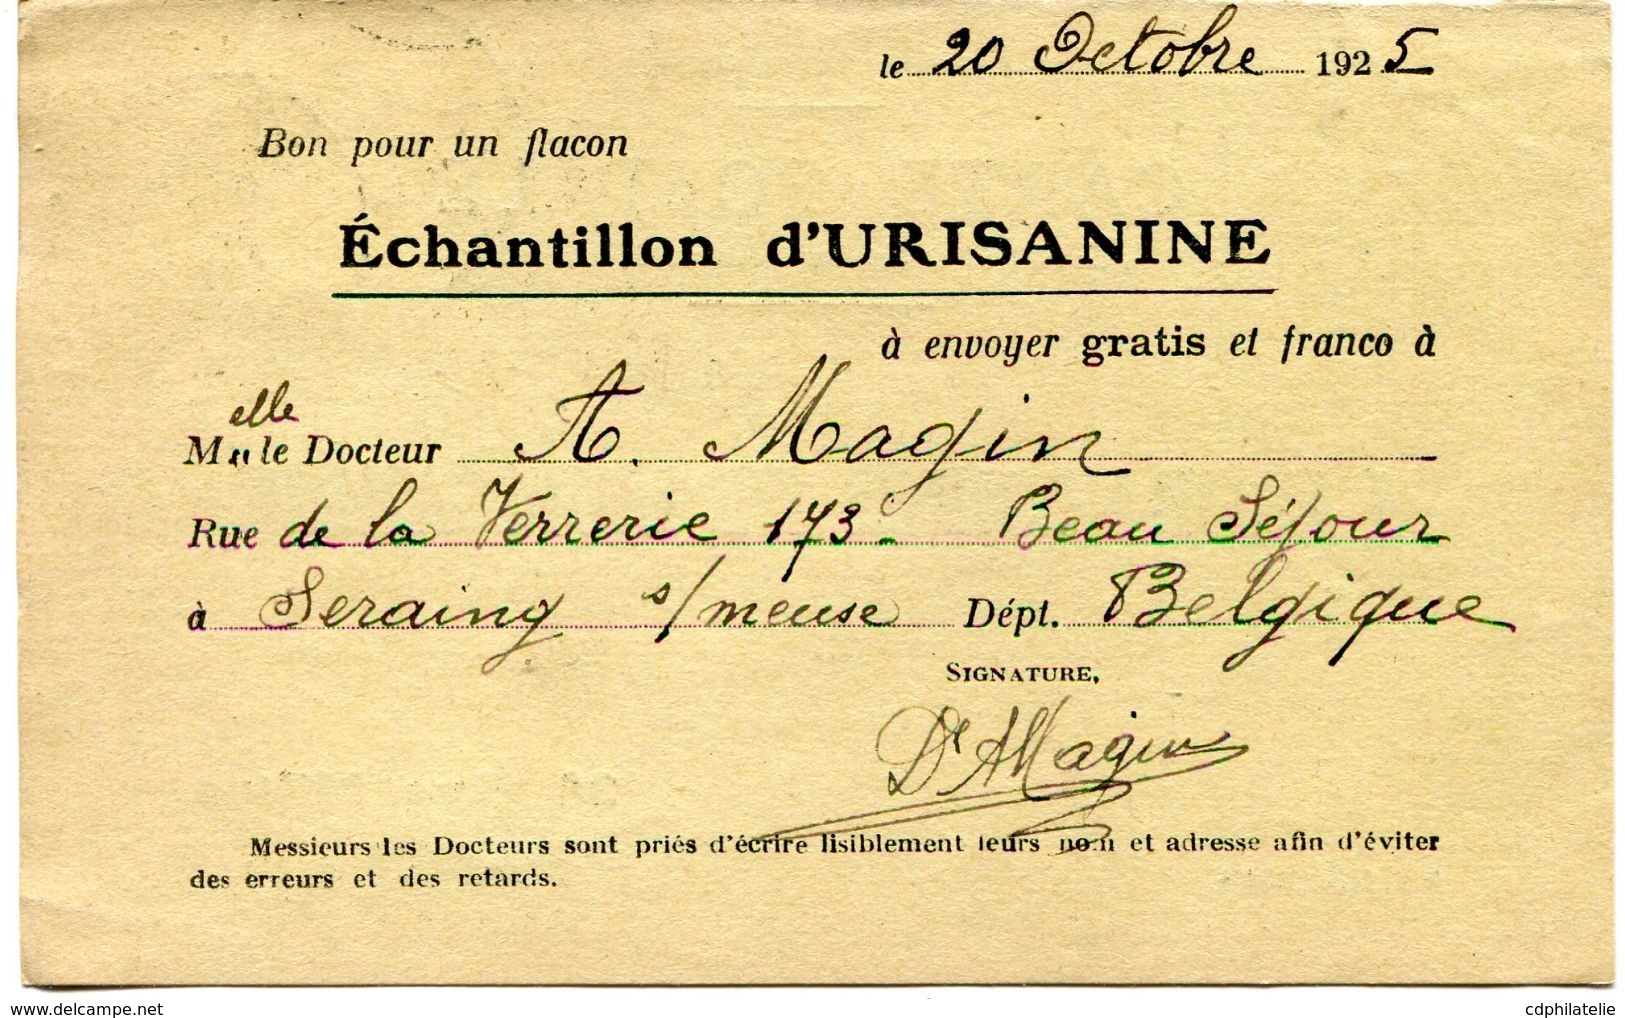 le 20 Octobre 1925
Bon pour un flacon
Échantillon d'URISANINE
à envoyer gratis et franco à
Melle le Docteur A. Magin
Rue de la Verrerie 173. Beau Séjour
à Seraing s/meuse Dépt. Belgique
SIGNATURE,
Dr AMagin
Messieurs les Docteurs sont priés d'écrire lisiblement leurs nom et adresse afin d'éviter
des erreurs et des retards.
www.delcampe.net
cdphilatelie